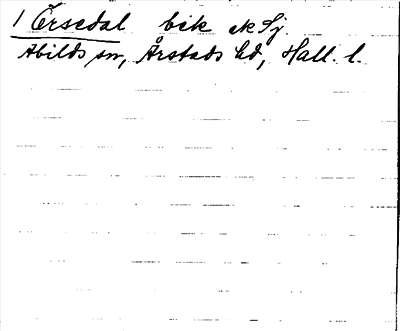 1 Örsedal bik ek Sj
Abilds sn, Årstads hd, Hall. l.